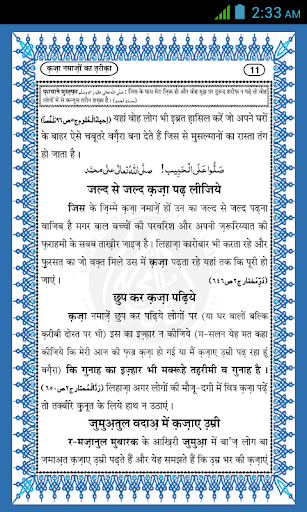 2:33 AM
क़ज़ा नमाज़ों का तरीक़ा
11
फ़रमाने मुस्तफ़ा : जिस के पास मेरा ज़िक्र हो और वोह मुझ पर दुरूद शरीफ़ न पढ़े तो वोह
लोगों में से कन्जूस तरीन शख़्स है।
यहां वोह लोग भी इब्रत हासिल करें जो अपने घरों
के बाहर ऐसे चबूतरे वग़ैरा बना देते हैं जिस से मुसल्मानों का रास्ता तंग
हो जाता है।
صَلُّوا عَلَى الْحَبِيب! صَلَّى اللهُ تَعَالٰى عَلٰى مُحَمَّد
जल्द से जल्द क़ज़ा पढ़ लीजिये
जिस के ज़िम्मे क़ज़ा नमाज़ें हों उन का जल्द से जल्द पढ़ना
वाजिब है मगर बाल बच्चों की परवरिश और अपनी ज़रूरिय्यात की
फ़राहमी के सबब ताख़ीर जाइज़ है। लिहाज़ा कारोबार भी करता रहे और
फ़ुरसत का जो वक़्त मिले उस में क़ज़ा पढ़ता रहे यहां तक कि पूरी हो
जाएं। (دُرِّمُختار ج٢ص٦٤٦)
छुप कर क़ज़ा पढ़िये
क़ज़ा नमाज़ें छुप कर पढ़िये लोगों पर (या घर वालों बल्कि
क़रीबी दोस्त पर भी) इस का इज़्हार न कीजिये (म-सलन येह मत कहा
कीजिये कि मेरी आज की फ़ज्र क़ज़ा हो गई या मैं क़ज़ाए उम्री पढ़ रहा हूं
वग़ैरा) कि गुनाह का इज़्हार भी मक्रूहे तहरीमी व गुनाह है।
(رَدُّالْمُحتار ج٢ص٦٥٠) लिहाज़ा अगर लोगों की मौजू-दगी में वित्र क़ज़ा पढ़ें
तो तक्बीरे क़ुनूत के लिये हाथ न उठाएं।
जुमुअ़तुल वदाअ़ में क़ज़ाए उम्री
र-मज़ानुल मुबारक के आख़िरी जुमुआ़ में बा'ज़ लोग बा
जमाअ़त क़ज़ाए उम्री पढ़ते हैं और येह समझते हैं कि उम्र भर की क़ज़ाएं